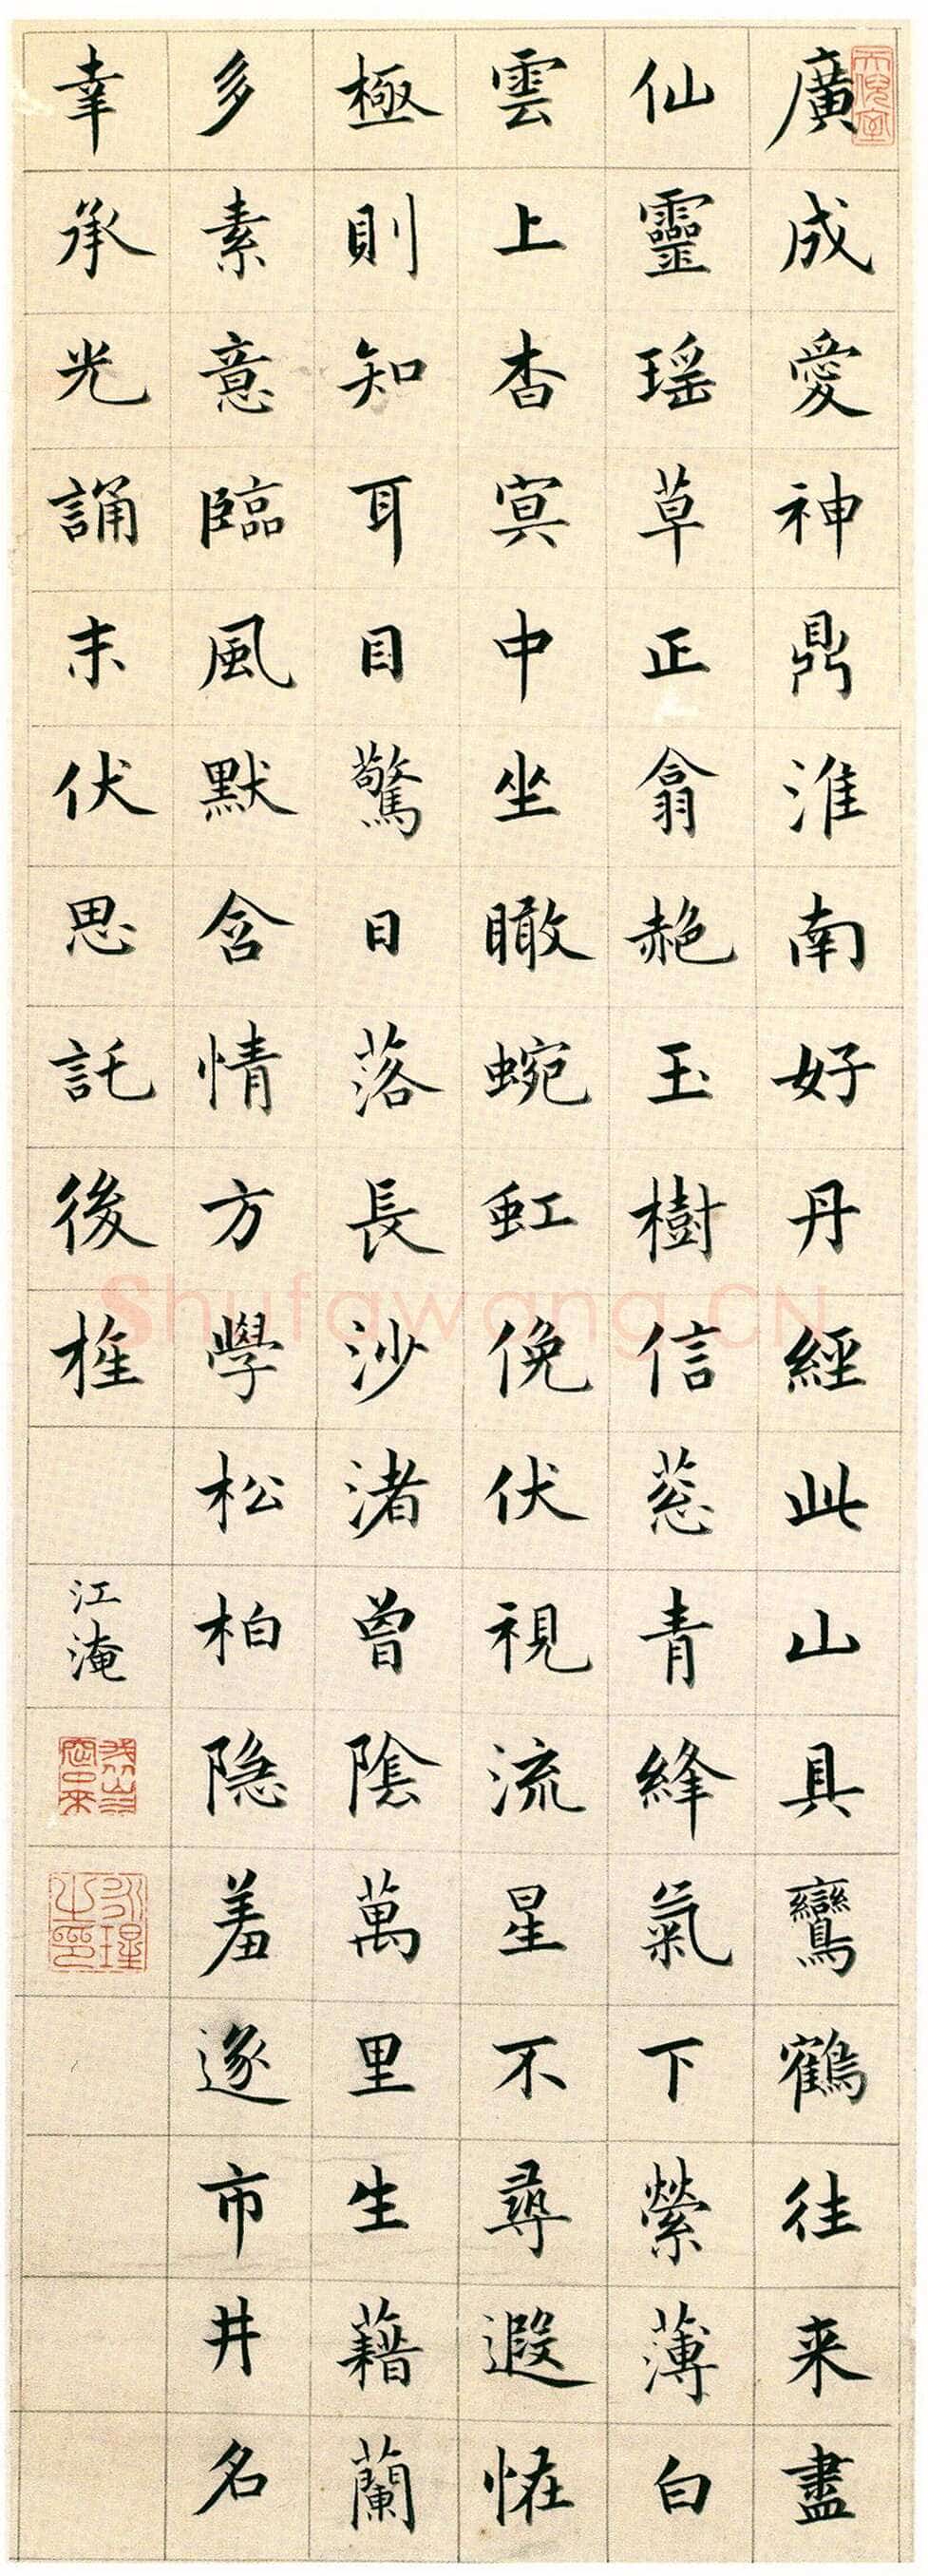 廣成愛神鼎淮南好丹經此山具鸞鶴往来盡
仙靈瑶草正翕赩玉樹信蔥青絳氣下縈薄白
雲上杳冥中坐瞰蜿虹俛伏視流星不尋遐怪
極則知耳目驚日落長沙渚曾陰萬里生藉蘭
多素意臨風默含情方學松柏隐羞逐市井名
幸承光誦末伏思託後旌
江淹
Shufawang.CN